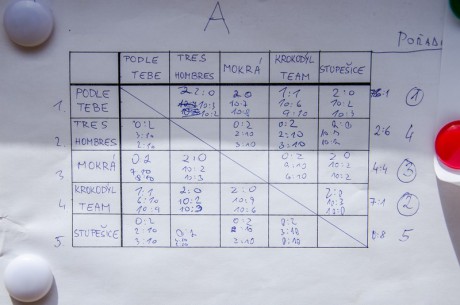 A
POŘADÍ
PODLE TEBE
TRES HOMBRES
MOKRÁ
KROKODÝL TEAM
STUPEŠICE
1. PODLE TEBE
2:0 10:3 10:2
2:0 10:7 10:8
1:1 10:6 9:10
2:0 10:2 10:3
1
2. TRES HOMBRES
0:2 3:10 2:10
0:2 2:10 3:10
0:2 2:10 3:10
2:0
2:6
4
3. MOKRÁ
0:2 7:10 8:10
2:0 10:2 10:3
0:2 9:10 6:10
2:0 10:2 10:2
4:4
3
4. KROKODÝL TEAM
1:1 6:10 10:9
2:0 10:2 10:3
2:0 10:9 10:6
2:0 10:3 10:8
7:1
2
5. STUPEŠICE
0:2 2:10 3:10
0:2
0:2 2:10 2:10
0:2 3:10 8:10
0:8
5